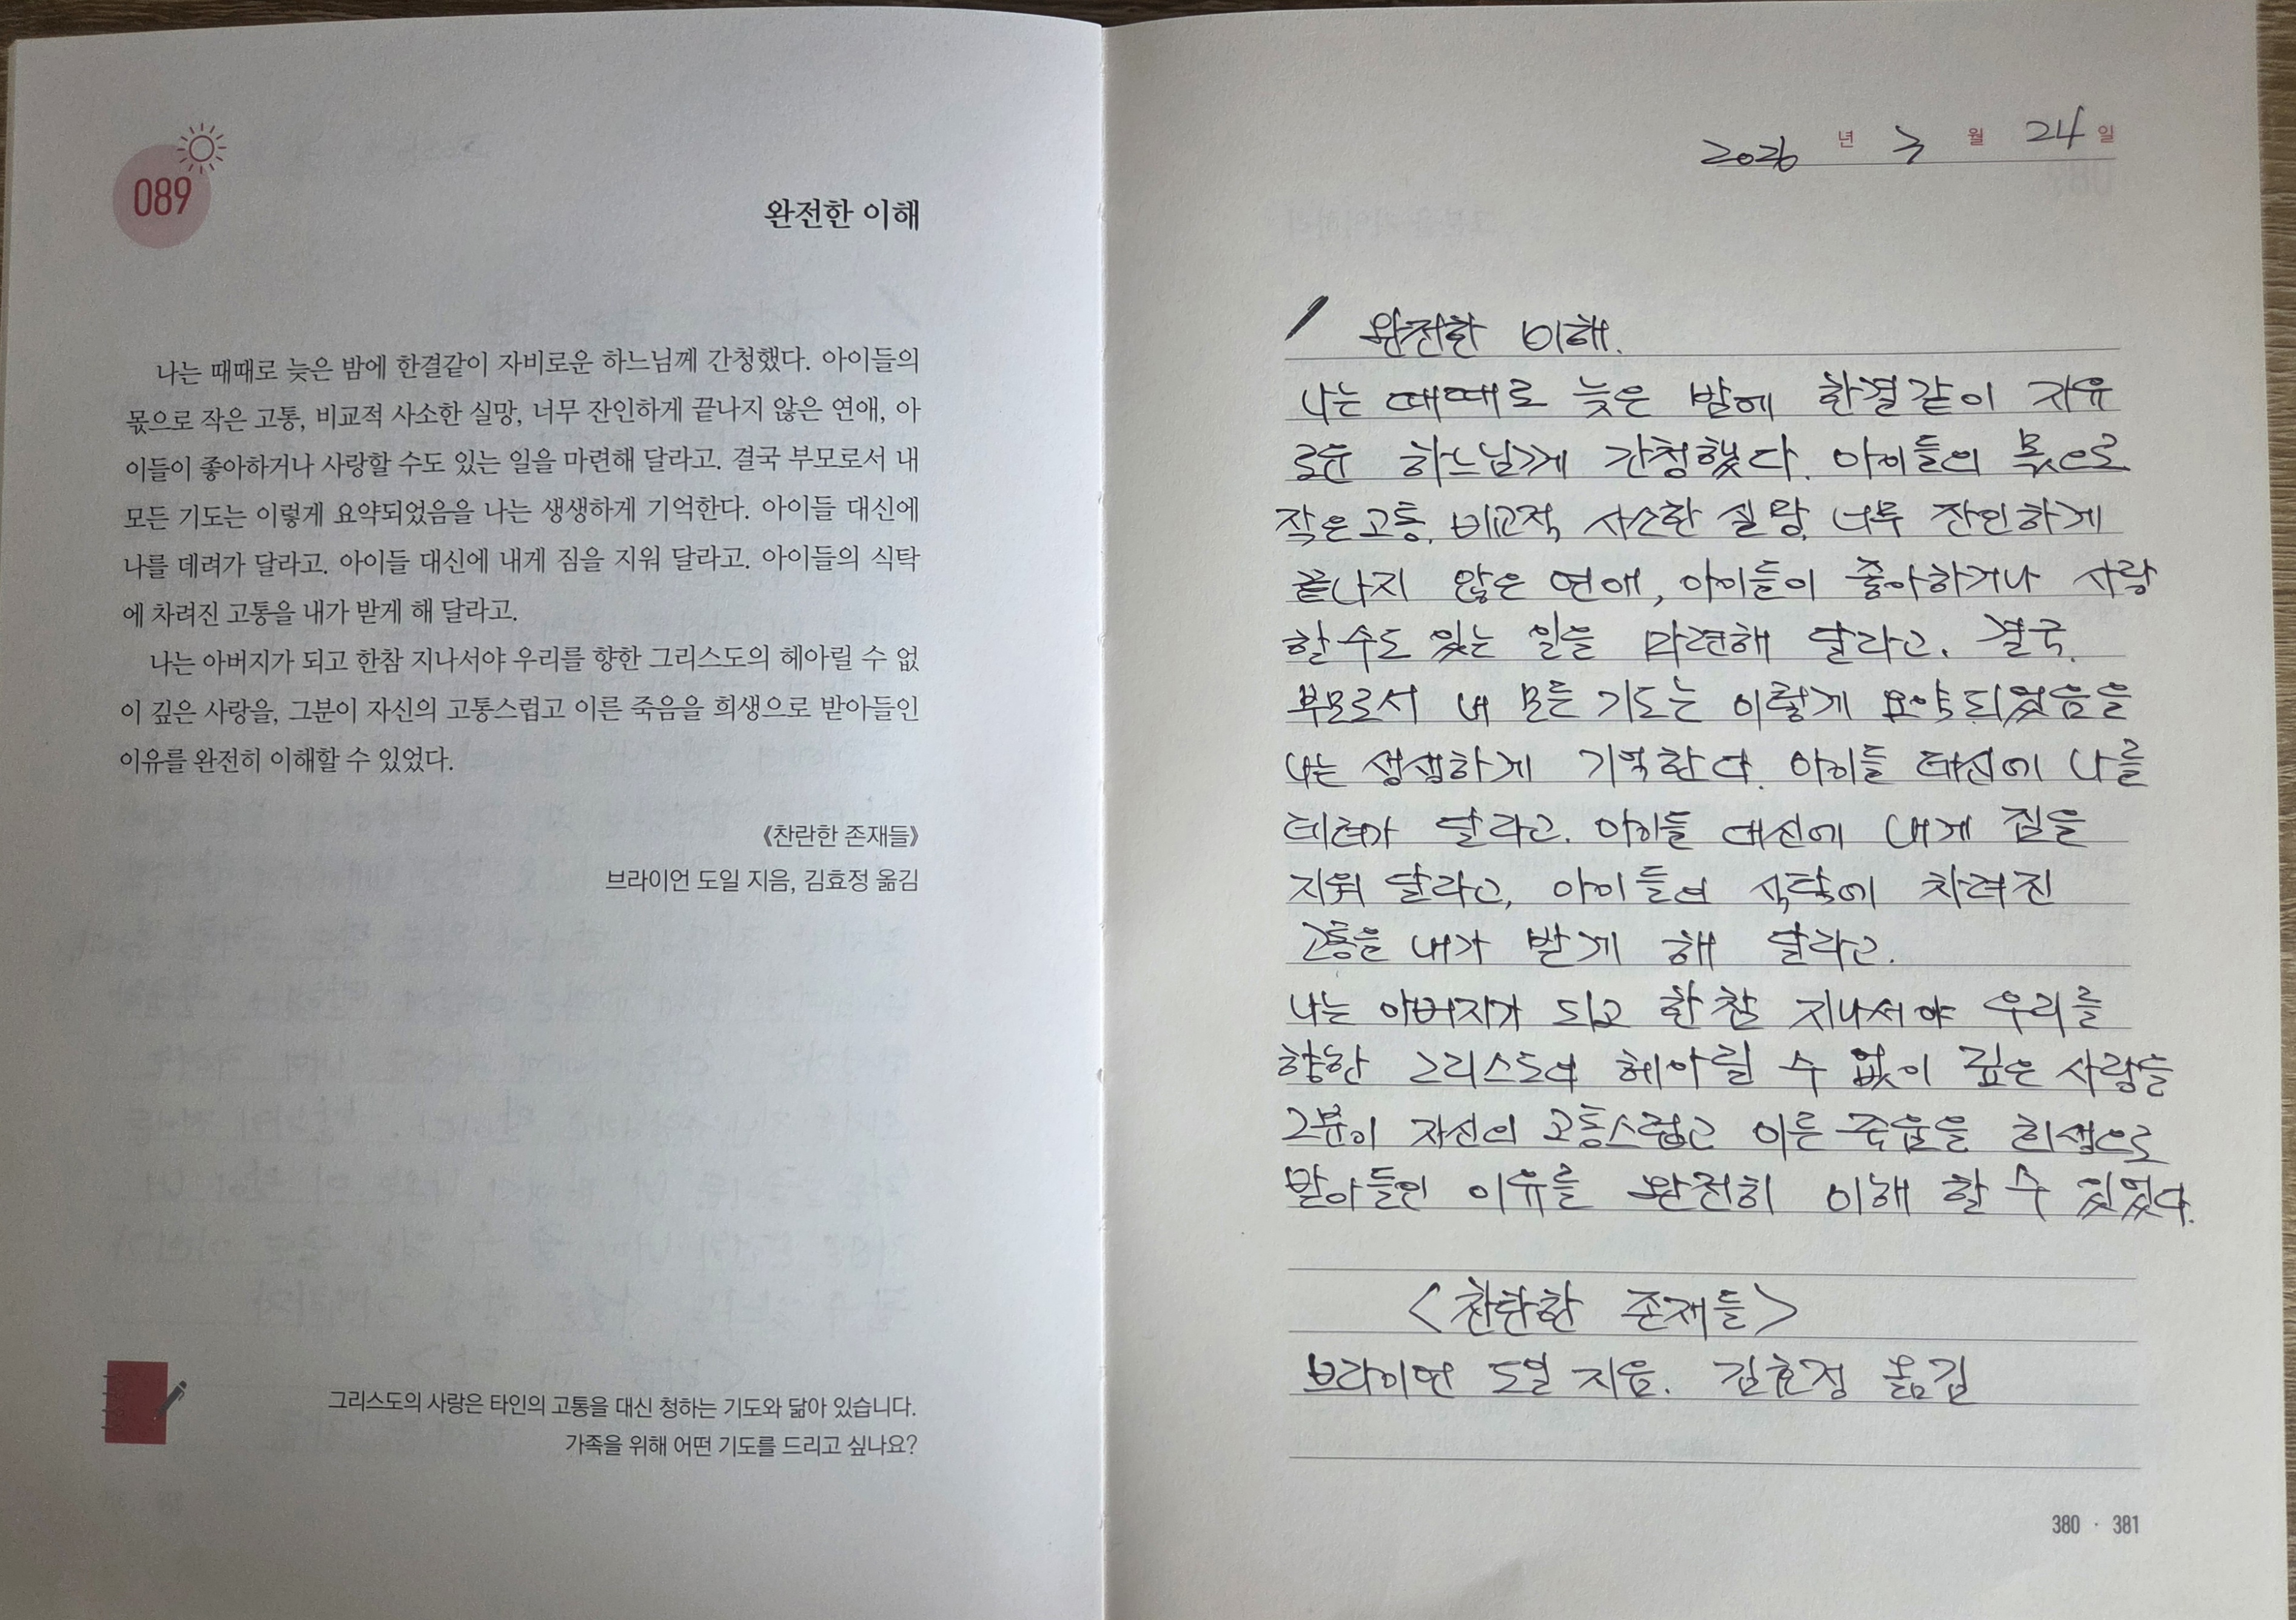 089
완전한 이해
나는 때때로 늦은 밤에 한결같이 자비로운 하느님께 간청했다. 아이들의
몫으로 작은 고통, 비교적 사소한 실망, 너무 잔인하게 끝나지 않은 연애, 아
이들이 좋아하거나 사랑할 수도 있는 일을 마련해 달라고. 결국 부모로서 내
모든 기도는 이렇게 요약되었음을 나는 생생하게 기억한다. 아이들 대신에
나를 데려가 달라고. 아이들 대신에 내게 짐을 지워 달라고. 아이들의 식탁
에 차려진 고통을 내가 받게 해 달라고.
나는 아버지가 되고 한참 지나서야 우리를 향한 그리스도의 헤아릴 수 없
이 깊은 사랑을, 그분이 자신의 고통스럽고 이른 죽음을 희생으로 받아들인
이유를 완전히 이해할 수 있었다.
《찬란한 존재들》
브라이언 도일 지음, 김효정 옮김
그리스도의 사랑은 타인의 고통을 대신 청하는 기도와 닮아 있습니다.
가족을 위해 어떤 기도를 드리고 싶나요?
2026 년 3 월 24 일
완전한 이해.
나는 때때로 늦은 밤에 한결같이 자유
로운 하느님께 간청했다. 아이들의 몫으로
작은 고통, 비교적 사소한 실망, 너무 잔인하게
끝나지 않은 연애, 아이들이 좋아하거나 사랑
할 수도 있는 일을 마련해 달라고. 결국.
부모로서 내 모든 기도는 이렇게 요약되었음을
나는 생생하게 기억한다. 아이들 대신에 나를
데려가 달라고. 아이들 대신에 내게 짐을
지워 달라고, 아이들의 식탁에 차려진
고통을 내가 받게 해 달라고.
나는 아버지가 되고 한참 지나서야 우리를
향한 그리스도의 헤아릴 수 없이 깊은 사랑을
그분이 자신의 고통스럽고 이른 죽음을 희생으로
받아들인 이유를 완전히 이해 할 수 있었다.
<찬란한 존재들>
브라이언 도일 지음. 김효정 옮김
380 · 381